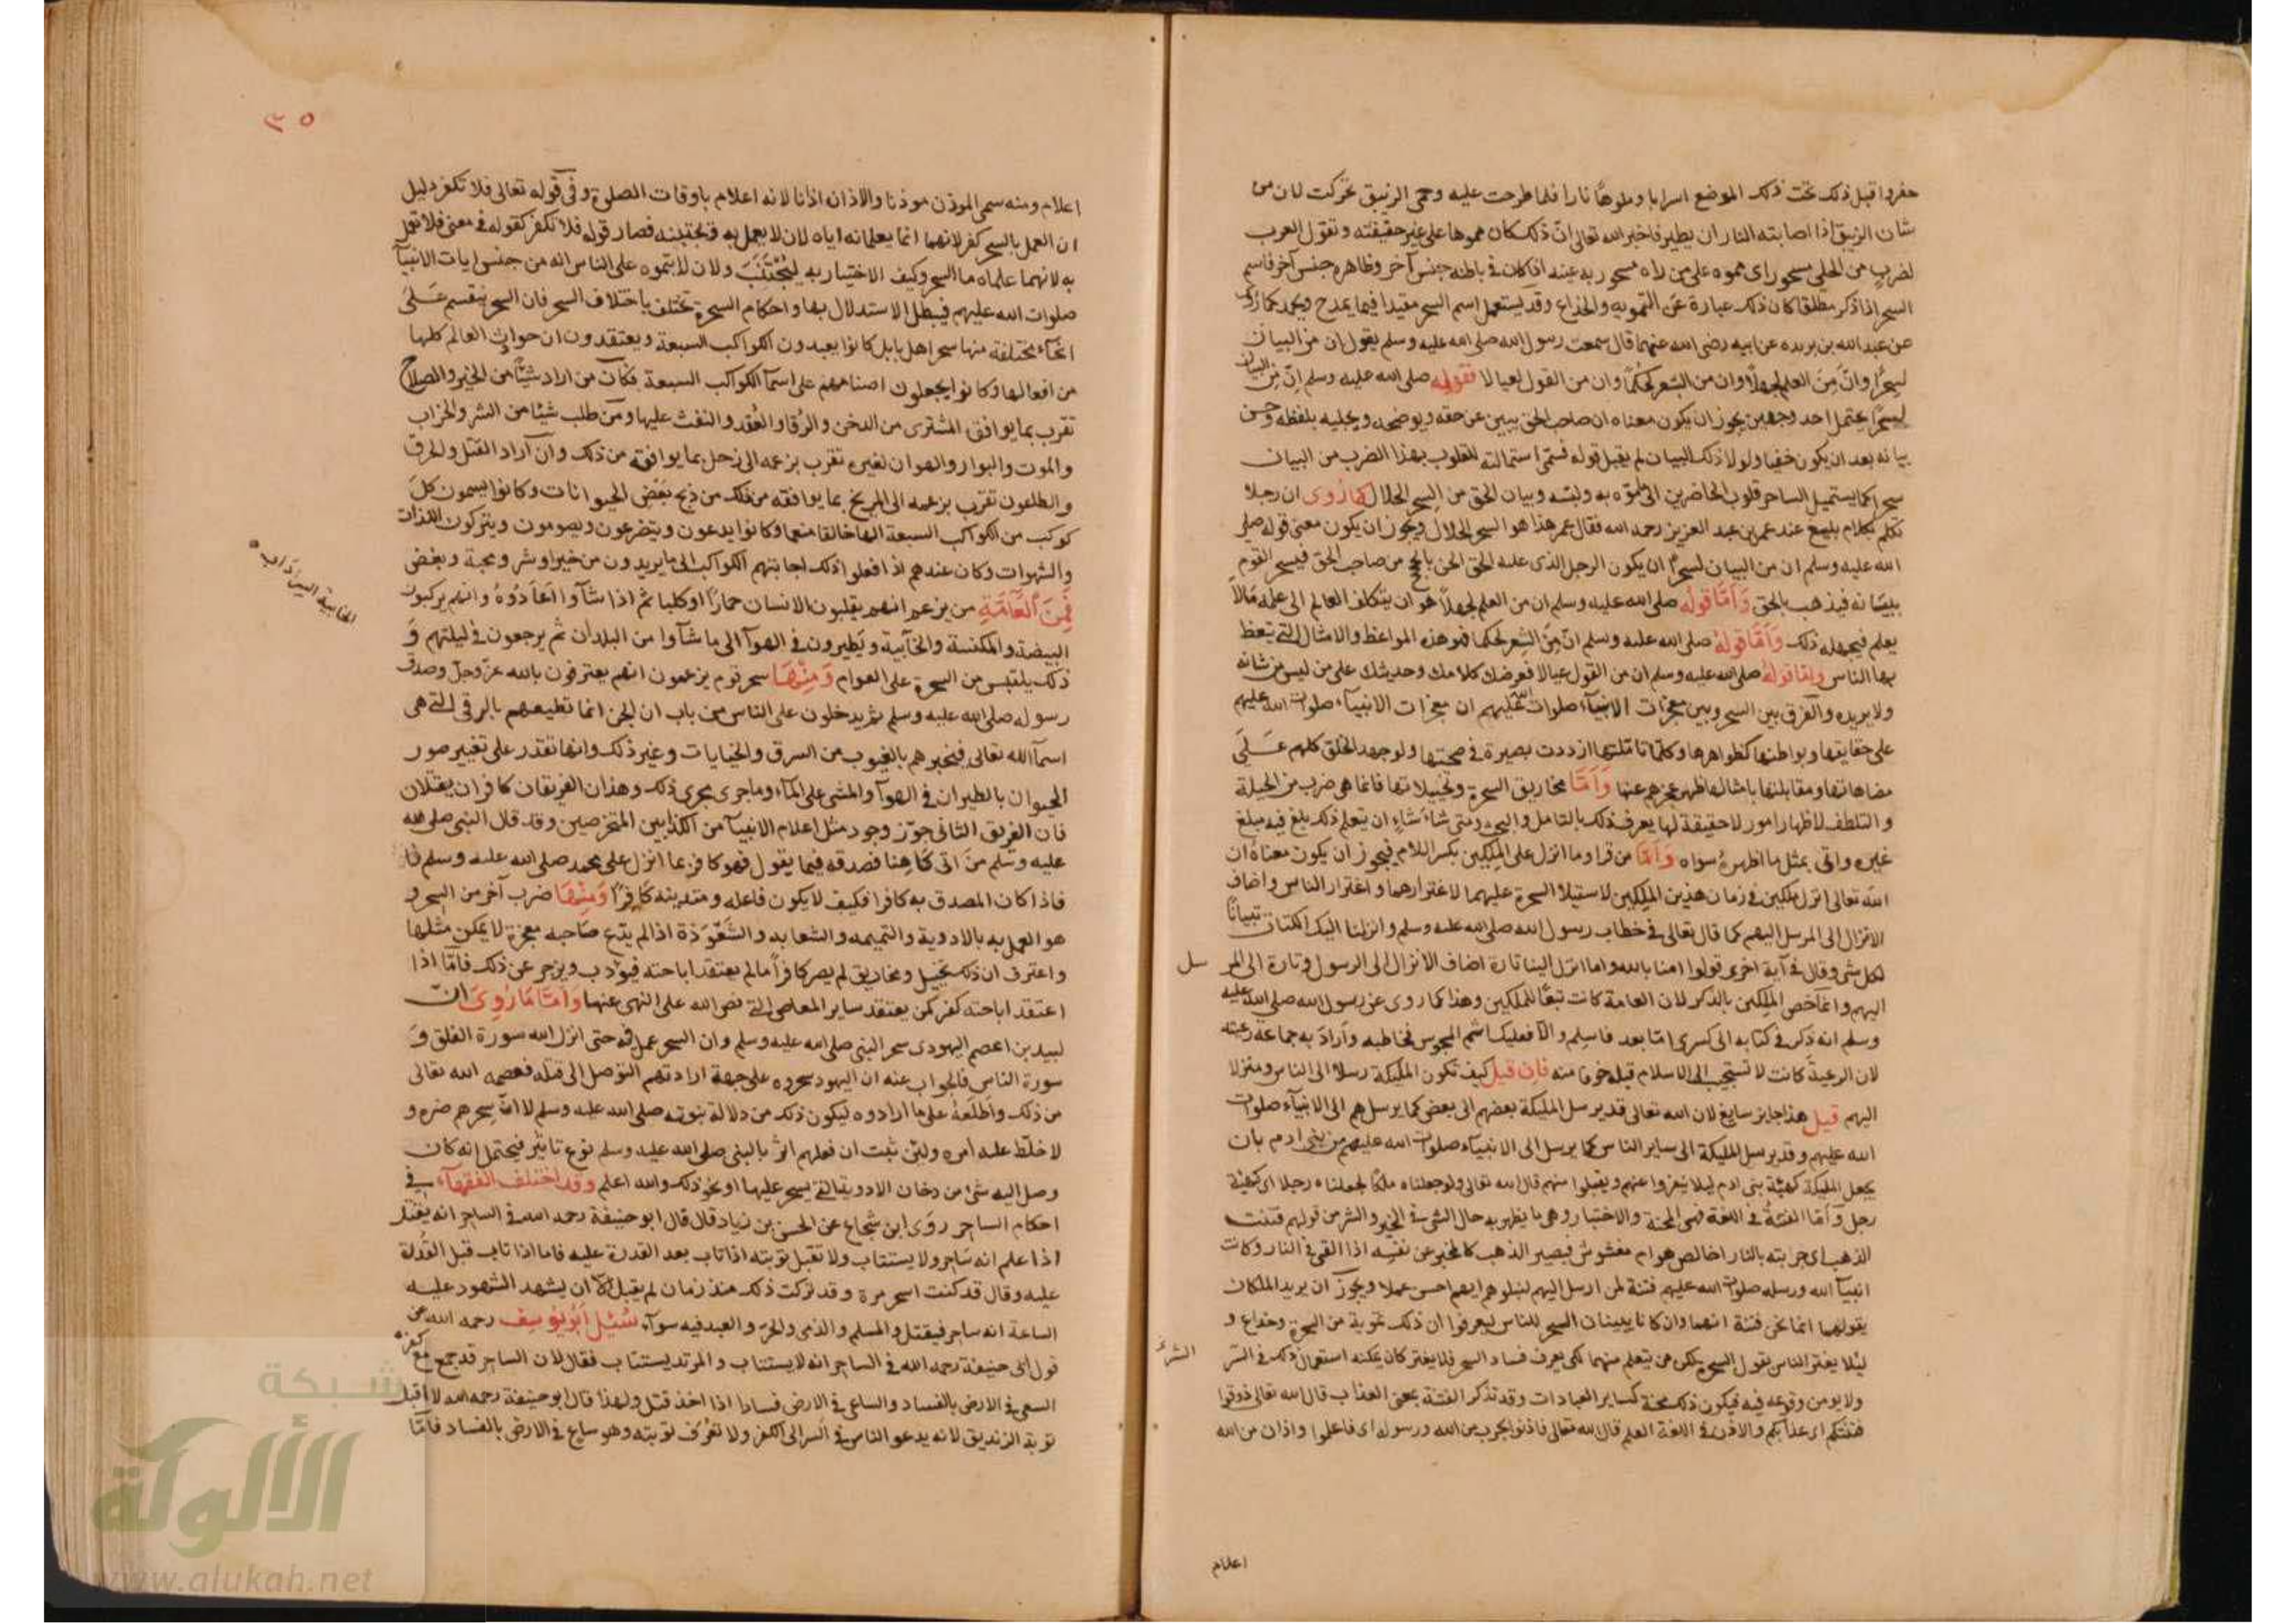 حفروا قبل ذلك تحت ذلك الموضع اسرابا وملوها نارا فلما طرحت عليه وحمى الزيبق تحركت لان من
شان الزيبق اذا اصابته النار ان يطير فاخبر الله تعالى ان ذلك كان مموها على غير حقيقته وتقول العرب
لضرب من الحلى مسحور اى مموه على من راه مسحور به عينه اذا كان فى باطنه جنس آخر وظاهره جنس آخر فاسم
السحر اذا ذكر مطلقا كان ذلك عبارة عن التمويه والخداع وقد يستعمل اسم السحر مقيدا فيما يمدح ويحمد كما روى
عن عبد الله بن بريده عن ابيه رضى الله عنهما قال سمعت رسول الله صلى الله عليه وسلم يقول ان من البيان
لسحرا وان من العلم لجهلا وان من الشعر لحكما وان من القول لعيالا فقوله صلى الله عليه وسلم ان من البيان
لسحرا يحتمل احد وجهين يجوز ان يكون معناه ان صاحب الحق يبين عن حقه ويوضحه ويجليه بلفظه وحسن
بيانه بعد ان يكون خفيا ولولا ذلك البيان لم يقبل قوله فسمى استمالته للقلوب بهذا الضرب من البيان
سحرا كما يستميل الساحر قلوب الحاضرين الى ما موّه به ولبسه وبيان الحق من السحر الحلال كما روى ان رجلا
تكلم بكلام بليغ عند عمر بن عبد العزيز رحمه الله فقال عمر هذا هو السحر الحلال ويجوز ان يكون معنى قوله صلى
الله عليه وسلم ان من البيان لسحرا ان يكون الرجل الذى عليه الحق الحن بالحجج من صاحب الحق فيسحر القوم
ببيانه فيذهب بالحق وَاَمَّا قوله صلى الله عليه وسلم ان من العلم لجهلا هو ان يتكلف العالم الى علمه مالا
يعلم فيجهله ذلك وَاَمَّا قوله صلى الله عليه وسلم ان من الشعر لحكما فهو هذه المواعظ والامثال التى يتعظ
بها الناس واما قوله صلى الله عليه وسلم ان من القول عيالا فعرضك كلامك وحديثك على من ليس من شانه
ولا يريده والفرق بين السحر وبين معجزات الانبيآء صلوات الله عليهم ان معجزات الانبيآء صلوات الله عليهم
على حقايقها وبواطنها كظواهرها وكلما تاملتها ازددت بصيرة فى صحتها ولو جهد الخلق كلهم عَلَى
مضاهاتها ومقابلتها بامثالها ظهر عجزهم عنها وَاَمَّا مخاريق السحرة وتخييلاتها فانما هى ضرب من الحيلة
والتلطف لاظهار امور لا حقيقة لها يعرف ذلك بالتامل والبحث ومتى شاء شاءٍ ان يتعلم ذلك بلغ فيه مبلغ
غيره واتى بمثل ما اظهره سواه وَاَمَّا من قرا وما انزل على الملكين بكسر اللام فيجوز ان يكون معناه ان
الله تعالى انزل ملكين فى زمان هذين الملكين لاستيلا السحرة عليهما لاغترارهما واغترار الناس واضاف
الانزال الى المرسل اليهم كما قال تعالى فى خطاب رسول الله صلى الله عليه وسلم وانزلنا اليك الكتاب تبيانا
لكل شى وقال فى آية اخرى قولوا امنا بالله وما انزل الينا تارة اضاف الانزال الى الرسول وتارة الى المر سل
اليهم وانما خص الملكين بالذكر لان العامة كانت تبعا للملكين وهذا كما روى عن رسول الله صلى الله عليه
وسلم انه ذكر فى كتابه الى كسرى اما بعد فاسلم والا فعليك اثم المجوس فخاطبه واراد به جماعة رعيته
لان الرعية كانت لا تستجيب الى الاسلام قبله خوفا منه فان قيل كيف تكون المليكة رسلا الى الناس ومنزلا
اليهم قيل هذا جايز سايغ لان الله تعالى قد يرسل المليكة بعضهم الى بعض كما يرسلهم الى الانبيآء صلوات
الله عليهم وقد يرسل المليكة الى ساير الناس كما يرسل الى الانبيآء صلوات الله عليهم من بنى ادم بان
يجعل المليكة كهيئة بنى ادم ليلا ينفروا عنهم ويقبلوا منهم قال الله تعالى ولو جعلناه ملكا لجعلناه رجلا اى كهيئة
رجل وَاَمّا الفتنة فى اللغة فهى المحنة والاختبار وهى ما يظهر به حال الشى فى الخير والشر من قولهم فتنت
الذهب اى جربته بالنار اخالص هو ام مغشوش فيصير الذهب كالمخبر عن نفسه اذا القى فى النار وكانت
انبيآ الله ورسله صلوات الله عليهم فتنة لمن ارسل اليهم لنبلوهم ايهم احسن عملا ويجوز ان يريد الملكان
بقولهما انما نحن فتنة انهما وان كانا يبينان السحر للناس ليعرفوا ان ذلك تمويه من السحرة وخداع و
ليلا يغتر الناس بقول السحرة يمكن من يتعلم منهما لكى يعرف فساد السحر فلا يغتر كان يمكنه استعمال ذلك فى الشر
الشرّ
ولا يومن وقوعه فيه فيكون ذلك محنة كساير العبادات وقد تذكر الفتنة بمعنى العذاب قال الله تعالى ذوقوا
فتنتكم اى عذابكم والاذن فى اللغة العلم قال الله تعالى فاذنوا بحرب من الله ورسوله اى فاعلموا واذان من الله
اعلام
٣٥
اعلام ومنه سمى الموذن موذنا والاذان اذانا لانه اعلام باوقات الصلوة وفى قوله تعالى فلا تكفر دليل
ان العمل بالسحر كفر لانهما انما يعلمانه اياه لان لا يعمل به فيجتنبه فصار قوله فلا تكفر كقوله فى معنى فلا تعمل
به لانهما علماه ما السحر وكيف الاختيار به ليُجْتَنَبَ ولان لا يتموه على الناس انه من جنس ايات الانبيآ
صلوات الله عليهم فيبطل الاستدلال بها واحكام السحرة تختلف باختلاف السحر فان السحر ينقسم عَلَى
انحآء مختلفة منها سحر اهل بابل كانوا يعبدون الكواكب السبعة ويعتقدون ان حوادث العالم كلها
من افعالها وكانوا يجعلون اصنامهم على اسمآ الكواكب السبعة فكان من اراد شيئا من الخير والصلاح
تقرب بما يوافق المشترى من الدخن والرُقا والعُقد والنفث عليها ومن طلب شيئا من الشر والخراب
والموت والبوار والهوان لغيره تقرب بزعمه الى زحل بما يوافقه من ذلك وان آراد القتل والحرق
والطاعون تقرب بزعمه الى المريخ بما يوافقه من ذلك من ذبح بعض الحيوانات وكانوا يسمون كل
كوكب من الكواكب السبعة الها خالقا منعما وكانوا يدعون ويتضرعون ويصومون ويتركون اللذات
والشهوات وكان عندهم اذا فعلوا ذلك اجابتهم الكواكب الى ما يريدون من خير او شر ومحبة وبغض
فَمِنَ العَامَّةِ من يزعم انهم يقلبون الانسان حمارا او كلبا ثم اذا شآوا اَعَادُوهُ وانهم يركبون
البيضة والمكنسة والخآبية ويَطيرون فى الهوآ الى ما شآوا من البلدان ثم يرجعون فى ليلتهم وَ
الخابية الس‍ رَدَاب
ذلك يلتبس من السحرة على العوام وَمِنْهَا سحر قوم يزعمون انهم يعترفون بالله عز وجل وصدق
رسوله صلى الله عليه وسلم ثم يدخلون على الناس من باب ان الجن انما تطيعهم بالرقى التى هى
اسمآ الله تعالى فيخبرهم بالغيوب من السرق والخيايات وغير ذلك وانها تقدر على تغيير صور
الحيوان بالطيران فى الهوآ والمشى على المآء وما جرى مجرى ذلك وهذان الفريقان كافران يقتلان
فان الفريق الثانى جوّز وجود مثل اعلام الانبيآ من الكذابين المتخرصين وقد قال النبى صلى الله
عليه وسلم من اتى كَاهِنا فصدقه فيما يقول فهو كافر بما انزل على محمد صلى الله عليه وسلم فا
فاذا كان المصدق به كافرا فكيف لا يكون فاعله ومتدينه كَافِرًا وَمِنْهَا ضرب آخر من السحر و
هو العمل به بالادوية والنميمه والشعابد والشَعْوَذة اذا لم يدّع صَاحبه معجزة لا يمكن مثلها
واعترف ان ذلك تخييل ومخاريق لم يصر كافراً ما لم يعتقد اباحته فيؤدب ويزجر عن ذلك فَاَمّا اذا
اعتقد اباحته كفر كمن يعتقد ساير المعاصى التى نص الله على النهى عنها وَاَمَّا مَا رُوِىَ انّ
لبيد بن اعصم اليهودى سحر النبى صلى الله عليه وسلم وان السحر عمل فيه حتى انزل الله سورة الفلق وَ
سورة الناس فالجواب عنه ان اليهود سحروه على جهة ارادتهم التوصل الى قتله فعصمه الله تعالى
من ذلك واَطْلَعَهُ على ما ارادوه ليكون ذلك من دلالة نبوته صلى الله عليه وسلم لا ان سِحرهم ضره و
لا خلّط عليه امره ولئن ثبت ان فعلهم اثّر بالنبى صلى الله عليه وسلم نوع تاثير فيحتمل انه كان
وصل اليه شئ من دخان الادوية التى يسحر عليها او نحو ذلك والله اعلم وقد اختلف الفقهآء فى
احكام الساحر روَى ابن شجاع عن الحسن بن زياد قال قال ابو حنيفة رحمه الله فى الساحر انه يقتل
اذا علم انه ساحر ولا يستتاب ولا تقبل توبته اذا تاب بعد القدرة عليه فاما اذا تاب قبل القدرة
عليه وقال قد كنت اسحر مرة وقد تركت ذلك منذ زمان لم يقبل الا ان يشهد الشهود عليه
الساعة انه ساحر فيقتل والمسلم والذمى والحر والعبد فيه سوآء سُئِلَ اَبُو يُوسِف رحمه الله عن
قول ابى حنيفة رحمه الله فى الساحر انه لا يستتاب والمرتد يستتاب فقال لان الساحر قد جمع مع كفره
السعى فى الارض بالفساد والساعى فى الارض فسادا اذا اخذ قتل ولهذا قال ابو حنيفة رحمه الله لا اقبل
توبة الزنديق لانه يدعو الناس فى السر الى الكفر ولا تعْرَف توبته وهو ساع فى الارض بالفساد فَاَمّا
شبكة
الألوكة
www.alukah.net